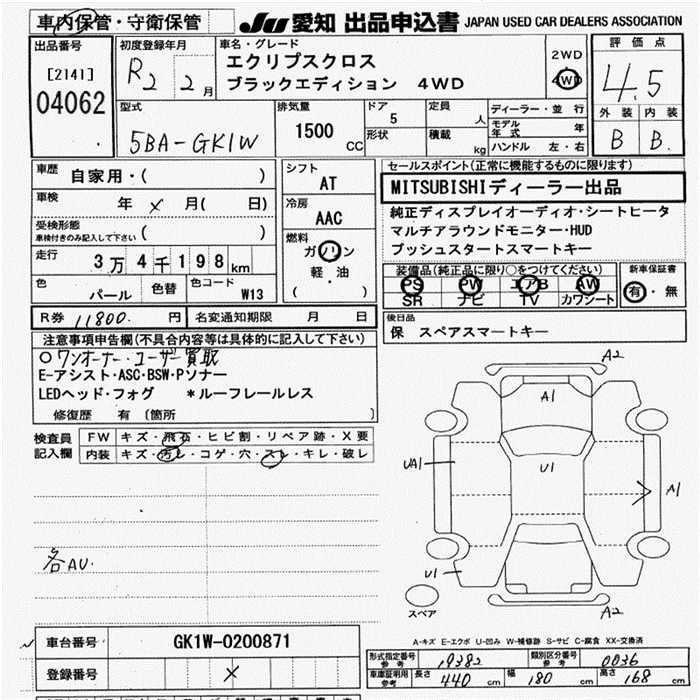 車内保管・守衛保管
JU 愛知 出品申込書 JAPAN USED CAR DEALERS ASSOCIATION
出品番号
[2141]
04062
初度登録年月
R2 2月
車名・グレード
エクリプスクロス
ブラックエディション 4WD
2WD
4WD
評価点
4.5
外装 内装
B B
型式
5BA-GK1W
排気量
1500 CC
ドア 5
形状
定員 人
積載 kg
ディーラー・並行
モデル年式 年
ハンドル 左・右
車歴 自家用・( )
車検 年 × 月( 日)
受検形態
車検付きのみ記入して下さい ( )
走行 3万4千198km
色 パール 色替 色コード W13
シフト AT
冷房 AAC
燃料
ガソリン
軽・油
( )
セールスポイント(正常に機能するものに限ります)
MITSUBISHIディーラー出品
純正ディスプレイオーディオ・シートヒータ
マルチアラウンドモニター・HUD
プッシュスタートスマートキー
装備品(純正品に限り○をつけてください)
PS PW エアB AW
SR ナビ TV カワシート
新車保証書
有・無
R券 11800. 円 名変通知期限 月 日
後日品
保 スペアスマートキー
注意事項申告欄(不具合内容等は具体的に記入して下さい)
○ワンオーナー・ユーザー買取
E-アシスト・ASC・BSW・Pソナー
LEDヘッド・フォグ *ルーフレールレス
修復歴 有 (箇所 )
検査員記入欄
FW キズ・飛石・ヒビ割・リペア跡・X要
内装 キズ・汚レ・コゲ・穴・スレ・キレ・破レ
各AU.
A2
A1
UA1
U1
A1
U1
A2
スペア
A-キズ E-エクボ U-凹み W-補修跡 S-サビ C-腐食 XX-交換済
車台番号 GK1W-0200871
登録番号 ×
形式指定番号 参考 19382 類別区分番号 参考 0036
車庫証明用 参考 長さ 440 cm 幅 180 cm 高さ 168 cm